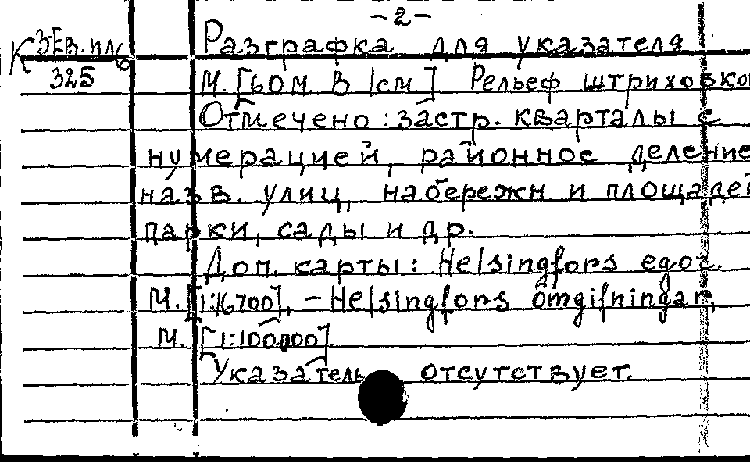 -2-
К ЗЕВ. пл6
325
Разграфка для указателя
М. [60м в 1см] Рельеф штриховкой
Отмечено: застр. кварталы с
нумерацией, районное деление
назв. улиц, набережн и площадей
парки, сады и др.
Доп. карты: Helsingfors egor.
М. [1:16700]. - Helsingfors omgifningar.
М. [1:100000]
Указатель отсутствует.